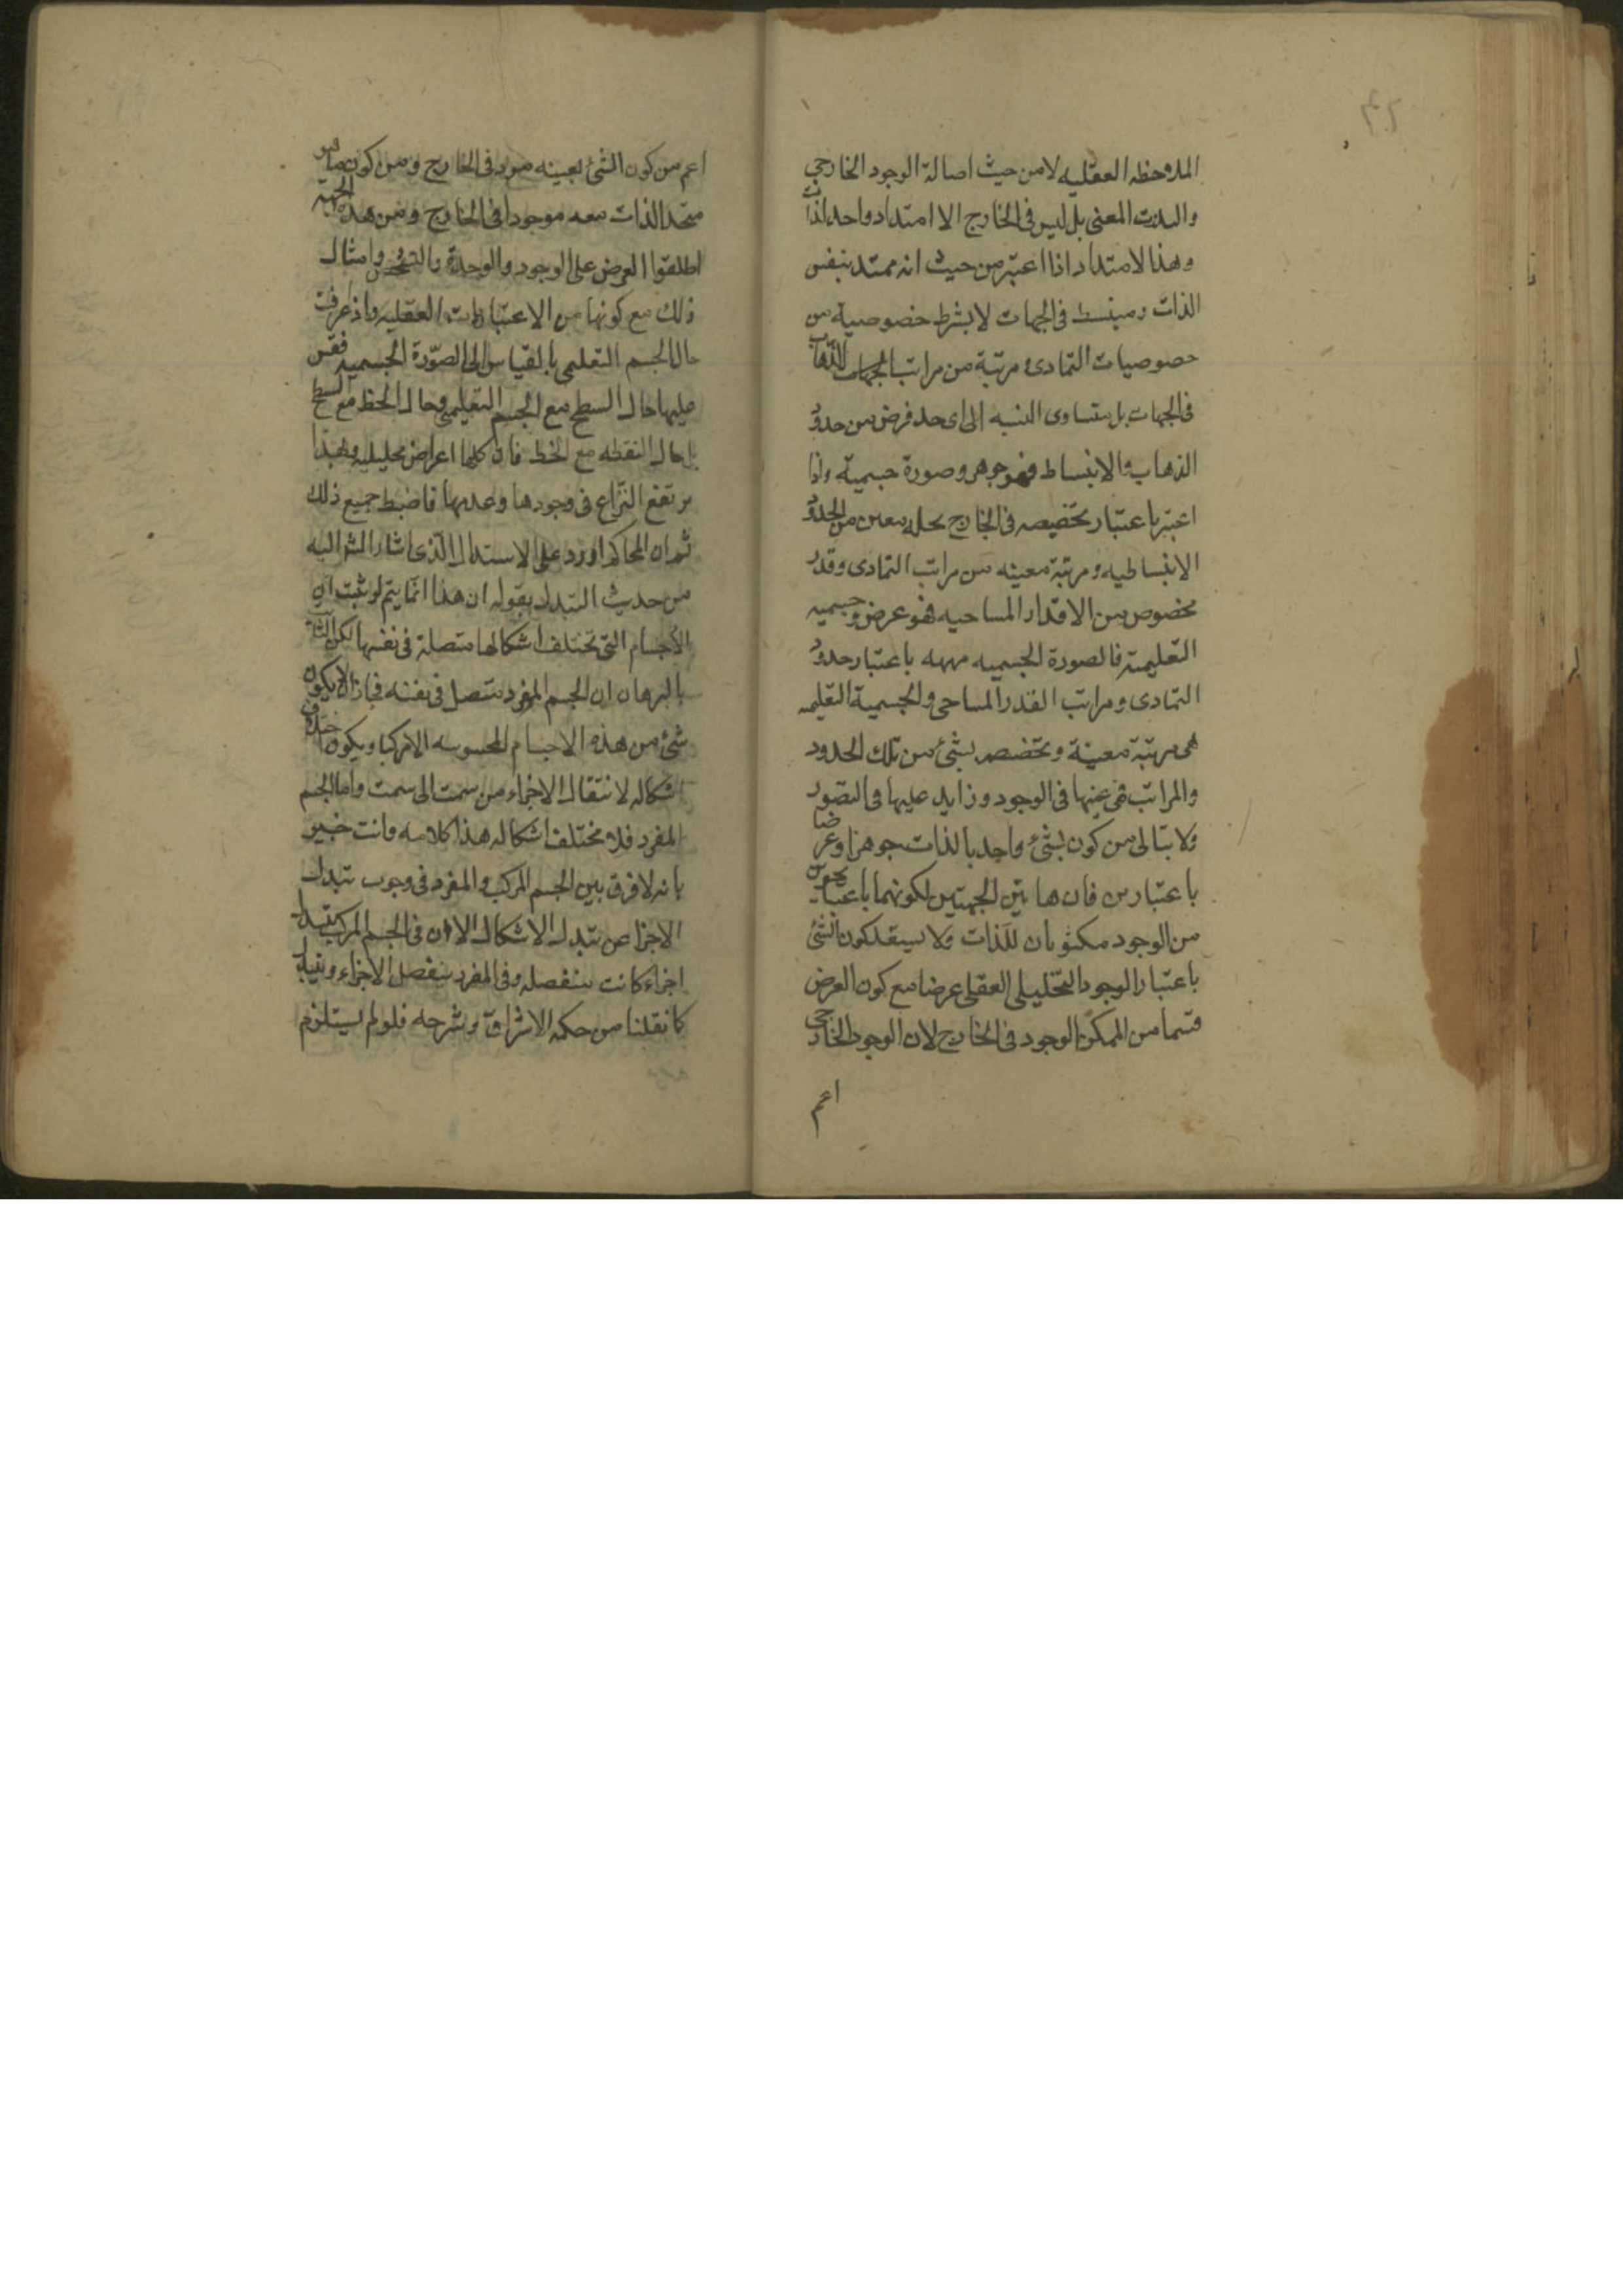 الملاحظه العقليه لا من حيث اصالة الوجود الخارجي
المعنى بل ليس فى الخارج الا امتداد واحد
وهذا الامتداد اذا اعتبر من حيث انه ممتد بنفس
الذات ومنبسط فى الجهات لا بشرط خصوصية من
خصوصيات التمادى ومرتبة من مراتب الذهاب
فى الجهات بل متساوى النسبه الى اى حد فرض من حدود
الذهاب والانبساط فهو جوهر وصورة جسمية واذا
اعتبر باعتبار تخصيصه فى الخارج معين من الحدود
الانبساطيه ومرتبة معينه من مراتب التمادى وقدر
مخصوص من الاقدار المساحيه فهو عرض وجسميه
التعليمية فالصورة الجسميه مبهمه باعتبار حدود
التمادى ومراتب القدر المساحى والجسمية التعليميه
هى مرتبة معينة وتخصصه بشئ من تلك الحدود
والمراتب فهى عينها فى الوجود وزايد عليها فى التصور
ولا من كون شئ واحد بالذات جوهرا وعرضا
باعتبارين فان هاتين الجهتين لكونهما باعتبار نحوين
من الوجود للذات ولا يبعد كون الشئ
باعتبار الوجود التحليلى العقلى عرضا مع كون العرض
قسما من الممكن الوجود فى الخارج لان الوجود الخارجى
اعم
اعم من كون الشئ بعينه موجود فى الخارج ومن كون ما هو
متحد الذات معه موجودا فى الخارج ومن هذه الجهة
اطلقوا العرض على الوجود والوحدة والتشخص وامثال
ذلك مع كونها من الاعتبارات العقليه واذا عرفت
حال الجسم التعليمى بالقياس الى الصورة الجسميه فقس
عليها حال السطح مع الجسم التعليمى وحال الخط مع السطح
بل حال النقطه مع الخط فان كلها اعراض تحليليه وبهذا
يرتفع النزاع فى وجودها وعدمها فاضبط جميع ذلك
ثم ان المحاكم اورد على الاستدلال الذى اشار اليه
من حديث التبدل بقوله ان هذا انما يتم لو ثبت ان
الاجسام التى تختلف اشكالها متصلة فى نفسها لكن الثابت
بالبرهان ان الجسم المفرد متصل فى نفسه فجاز ان لا يكون
شئ من هذه الاجسام المحسوسه الا مركبا ويكون اختلاف
اشكاله لانتقال الاجزاء من سمت الى سمت واما الجسم
المفرد فلا تختلف اشكاله هذا كلامه وانت خبير
بانه لا فرق بين الجسم المركب والمفرد فى وجوب تبدل
الاجزا عن تبدل الاشكال الا ان فى الجسم المركب تتبدل
اجزاء كانت منفصله وفى المفرد ينفصل الاجزاء
كما نقلنا من حكمة الاشراق وشرحه فلو لم يستلزم